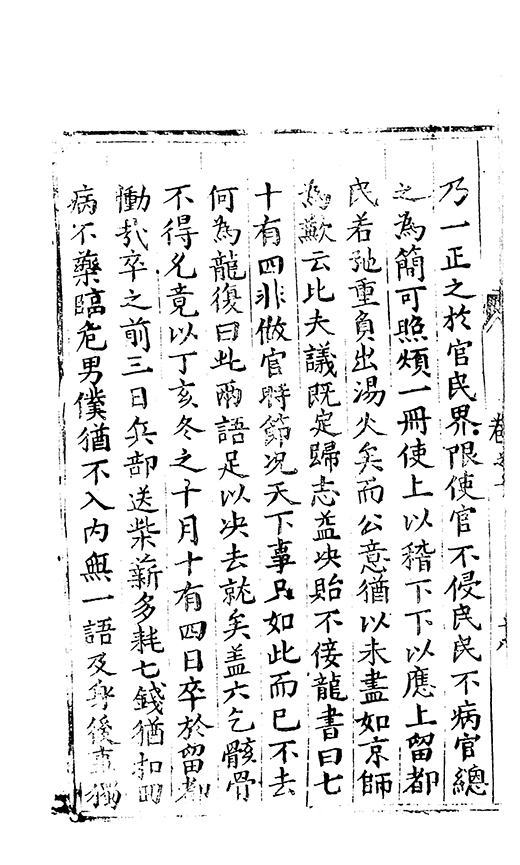 乃一正之於官民界限使官不侵民民不病官總
之為簡可照煩一冊使上以稽下下以應上留都
民若弛重負出湯火矣而公意猶以未盡如京師
為歉云比夫議既定歸志益决貽不佞龍書曰七
十有四非做官時節况天下事只如此而已不去
何為龍復曰此兩語足以决去就矣盖六乞骸骨
不得允竟以丁亥冬之十月十有四日卒於留都
慟哉卒之前三日兵部送柴薪多耗七錢猶扣回
病不藥臨危男僕猶不入内無一語及身後事獨
卷